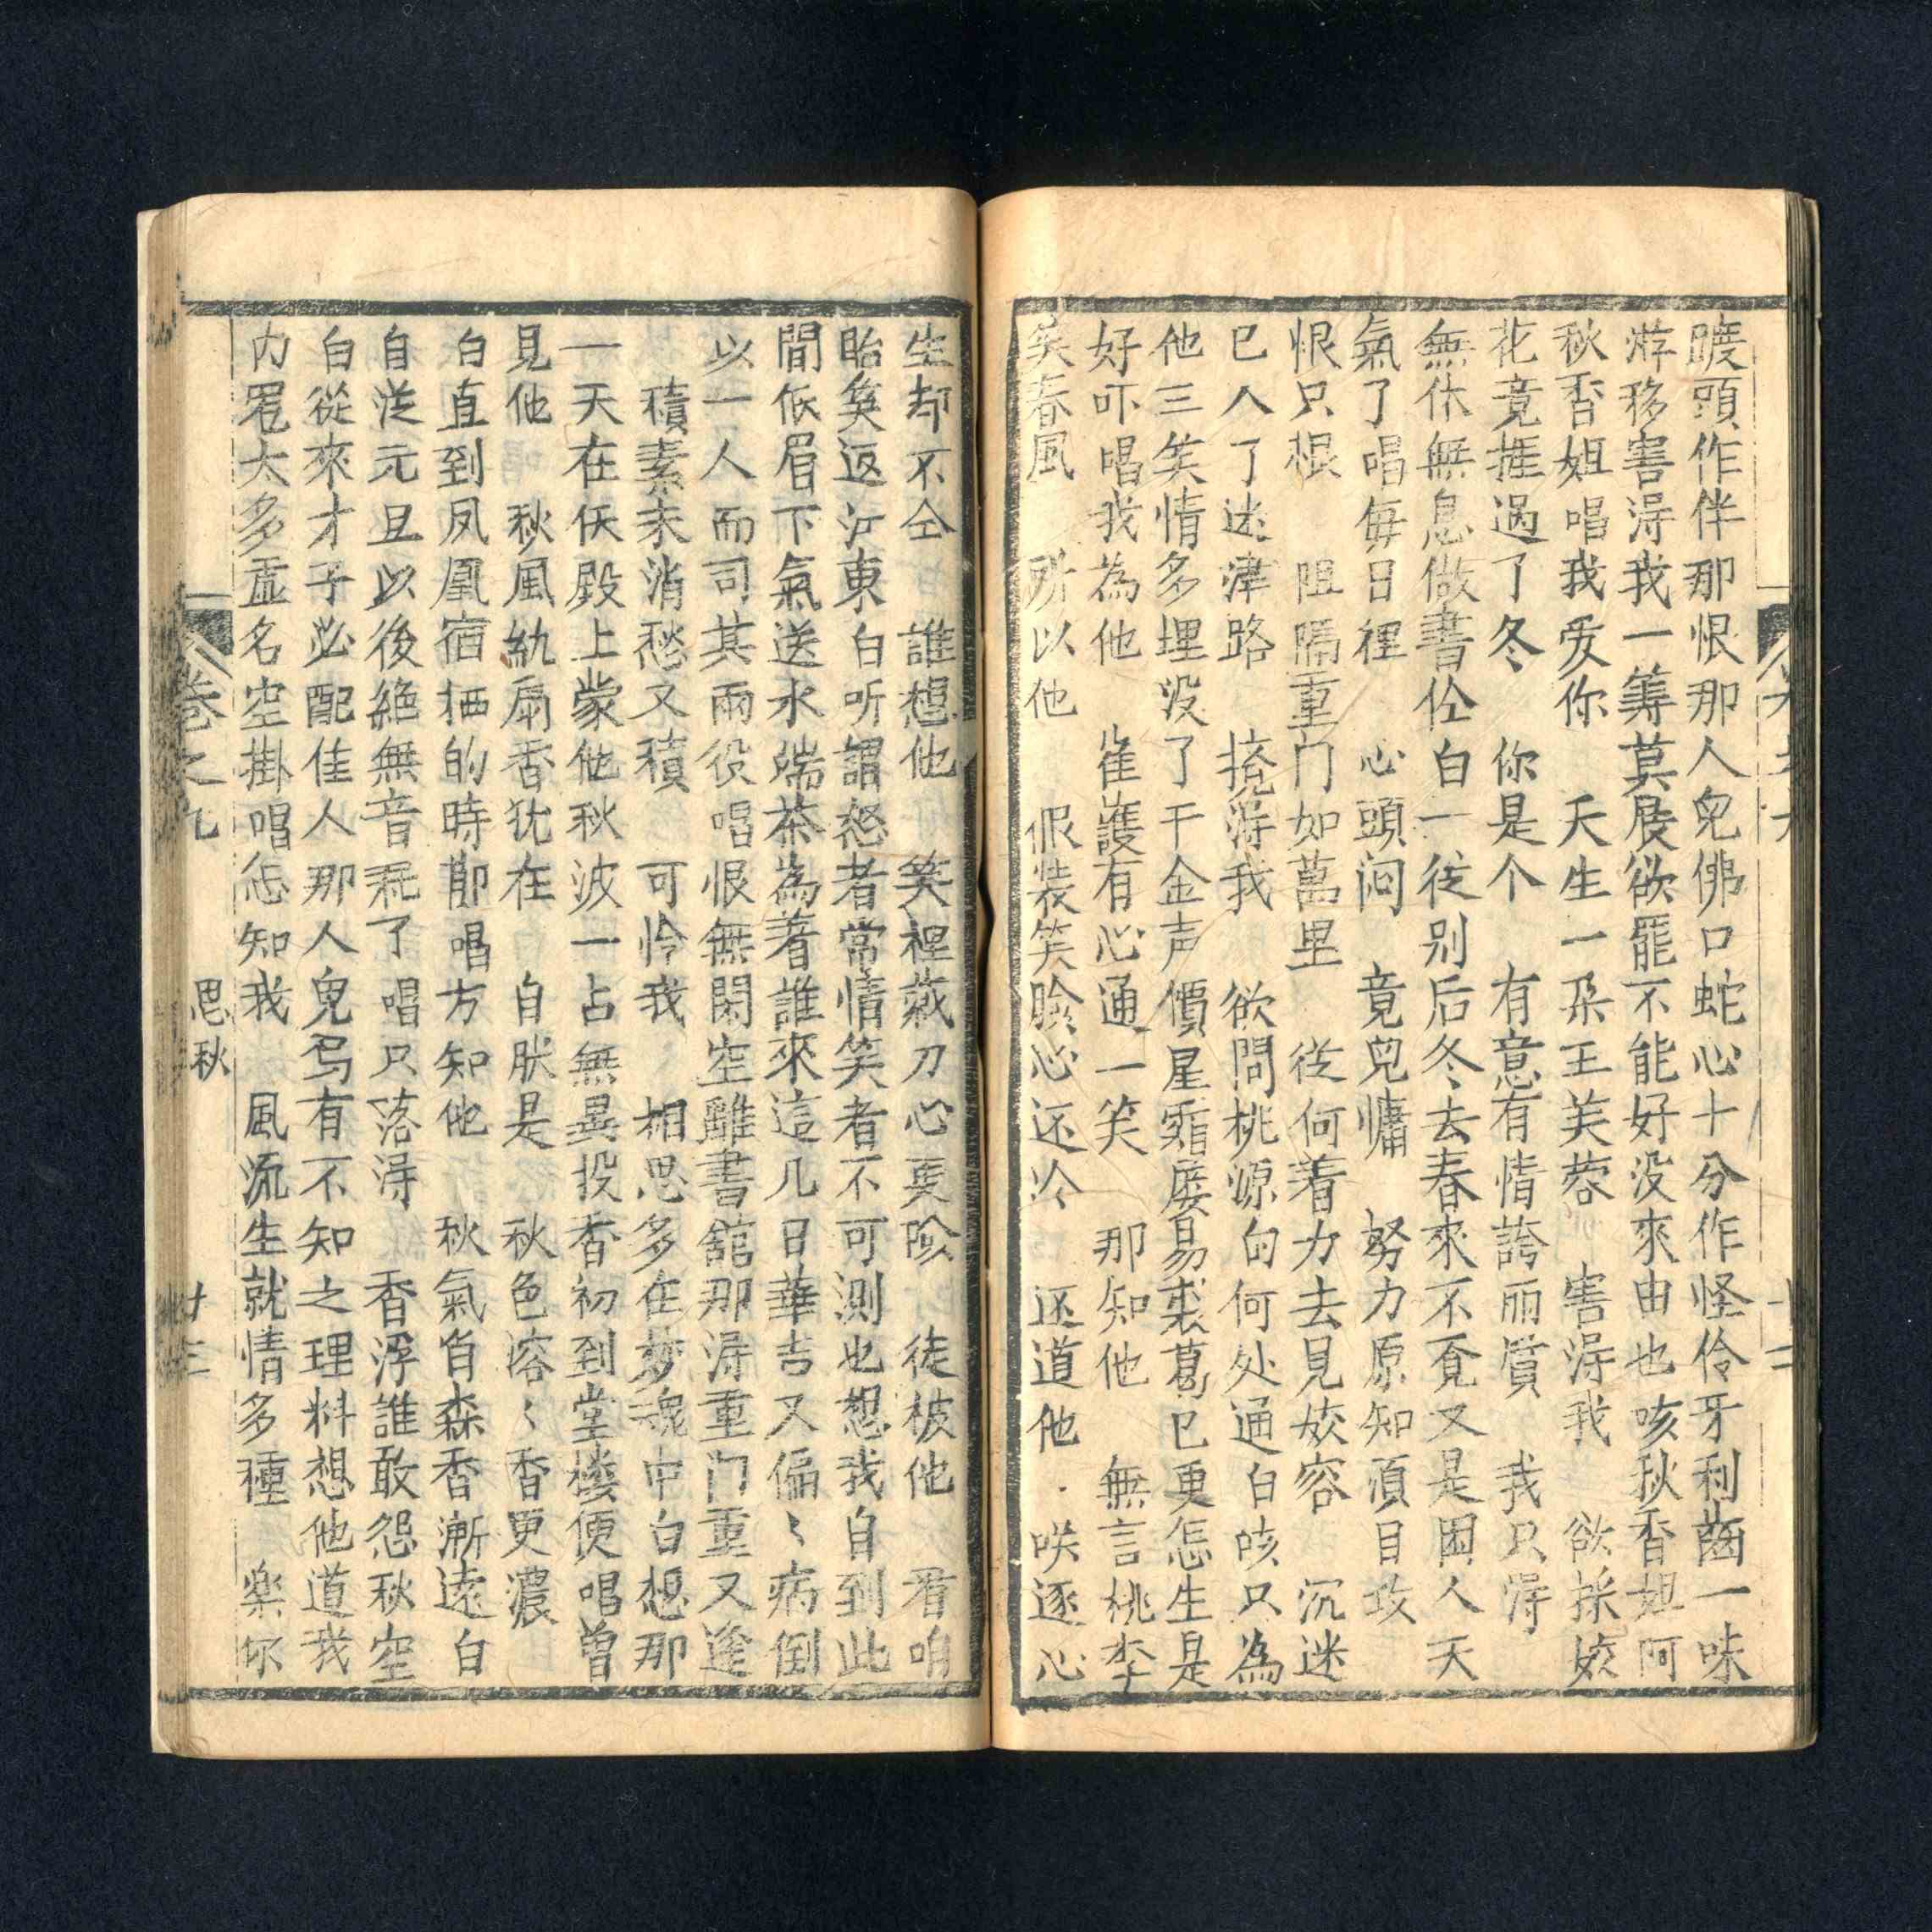 暖頭作伴那恨那人皃佛口蛇心十分作怪伶牙利齒一味
游移害淂我一籌莫展欲罷不能好没來由也咳秋香姐阿
秋香姐唱我爱你 天生一朶玉芙蓉 害淂我 欲採姣
花竟捱過了冬 你是个 有意有情誇丽質 我只淂
無休無息做書伀白一従别后冬去春來不覔又是困人天
氣了唱每日裡 心頭闷 竟皃慵 努力原知湏目攻
恨只根 阻隔重门如萬里 従何着力去見姣容 沉迷
已入了迷津路 撓淂我 欲問桃源向何处通白咳只為
他三笑情多埋没了千金声價星霜屡易裘葛已更怎生是
好吓唱我為他 崔護有心通一笑 那知他 無言桃李
笑春風 所以他 假装笑臉心还冷 还道他 咲逐心
生却不仝 誰想他 笑裡藏刀心更险 徒被他 看咱
眙笑返江東白听謂怒者常情笑者不可測也想我自到此
間低眉下氣送水端茶為着誰來這几日華吉又偏〻病倒
以一人而司其兩役唱恨無閑空離書舘那淂重门重又逢
積素未消愁又積 可怜我 相思多在梦魂中白想那
一天在仸殿上蒙他秋波一占無異投香初到堂楼便唱曽
見他 秋風紈扇香犹在 自肰是 秋色溶〻香更濃
白直到凤凰宿栖的時莭唱方知他 秋氣自森香漸遠白
自従元旦以後絶無音耗了唱只落淂 香浮誰敢怨秋空
白從來才子必配佳人那人皃焉有不知之理料想他道我
内寵太多虚名空掛唱怎知我 風流生就情多種 楽你
卷之九 思秋 廿三